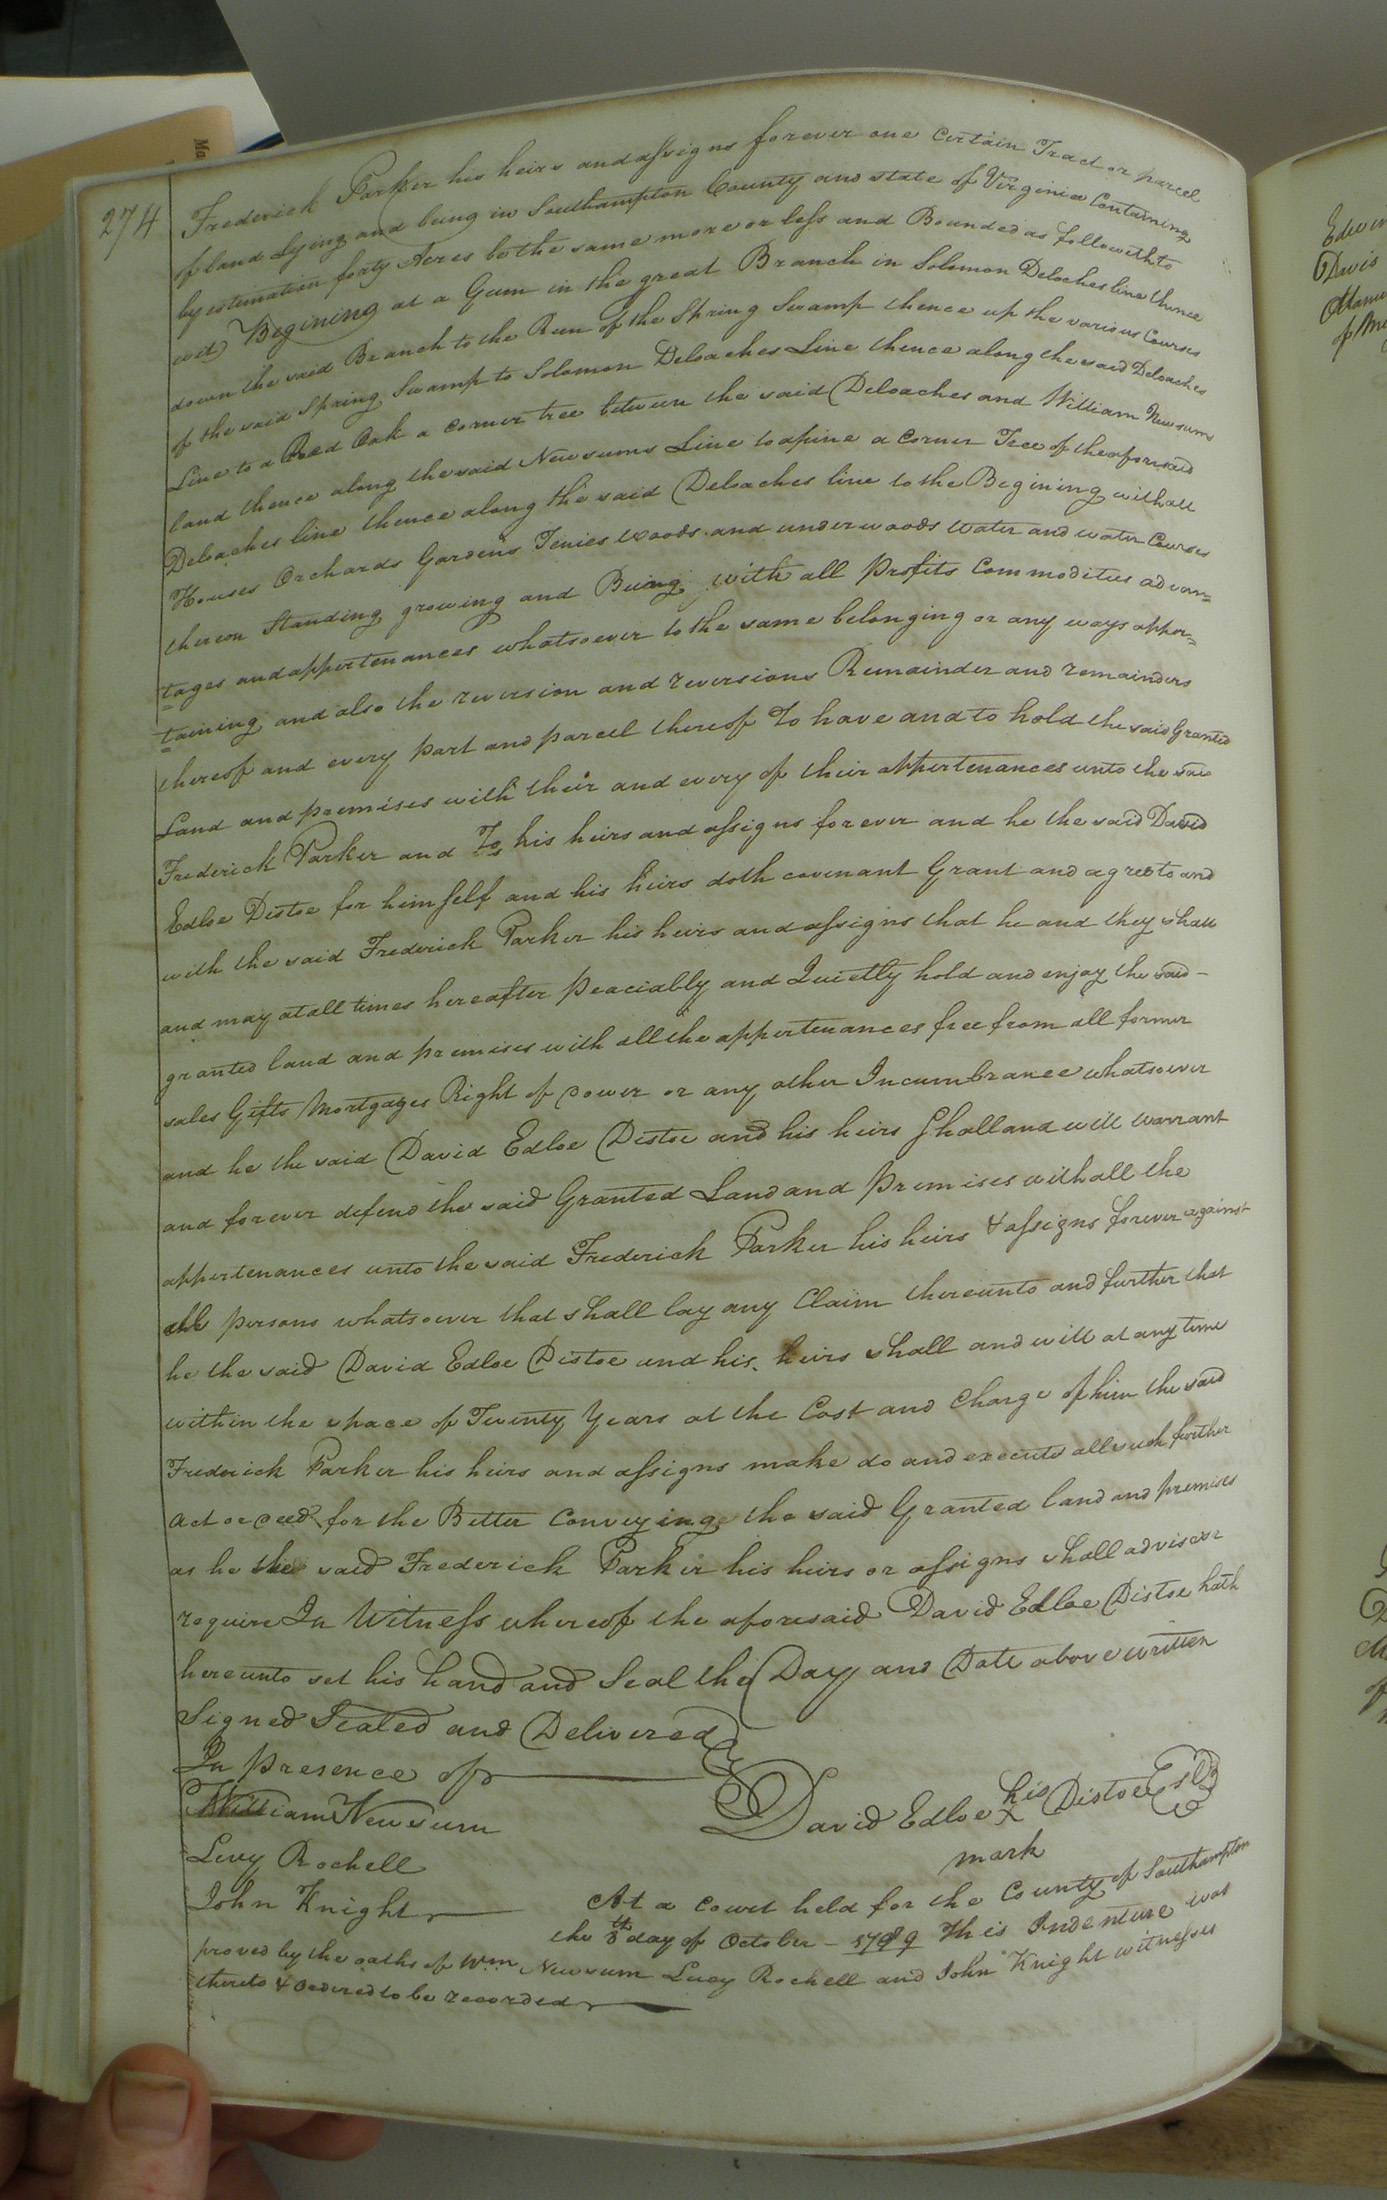 274
Frederick Parker his heirs and assigns forever one Certain Tract or parcel
of land Lying and being in Southampton County and state of Virginia Containing
by estimation forty Acres be the same more or less and Bounded as followeth to
wit Begining at a Gum in the great Branch in Solomon Deloches line thence
down the said Branch to the Run of the Spring Swamp thence up the various Courses
of the said Spring Swamp to Solomon Deloaches Line thence along the said Deloaches
Line to a Read Oak a corner tree between the said Deloaches and William Newsums
land thence along the said Newsums Line to a pine a Corner Tree of the aforesaid
Deloaches line thence along the said Deloaches line to the Begining with all
Houses Orchards Gardens Fences woods and underwoods water and water Courses
thereon Standing growing and Being with all profits Commodities advan=
=tages and appertenances whatsoever to the same belonging or any ways apper=
=taining and also the reversion and reversions Remainder and remainders
thereof and every part and parcel thereof To have and to hold the said Granted
Land and premises with their and every of their appertenances unto the said
Frederick Parker and To his heirs and assigns forever and he the said David
Edloe Distoe for himself and his heirs doth covenant Grant and agree to and
with the said Frederick Parker his heirs and assigns that he and they shall
and may at all times hereafter peaciably and Quietly hold and enjoy the said -
granted land and premises with all the appertenances free from all former
sales Gifts Mortgages Right of Dower or any other Incumbrance whatsoever
and he the said David Edloe Distoe and his heirs Shall and will warrant
and forever defend the said Granted Land and Premises with all the
appertenances unto the said Frederick Parker his heirs & assigns forever against
all persons whatsoever that shall lay any Claim thereunto and further that
he the said David Edloe Distoe and his heirs shall and will at any time
within the space of Twenty Years at the Cost and Charge of him the said
Frederick Parker his heirs and assigns make do and execute all such further
act or Deed for the Better Conveying the said Granted land and premises
as he the said Frederick Parker his heirs or assigns shall advise or
require In Witness whereof the aforesaid David Edloe Distoe hath
hereunto set his hand and Seal the Day and Date above written
Signed Sealed and Delivered
In presence of
William Newsum
Levy Rochell
John Knight
his
David Edloe X Distoe
mark
At a Court held for the County of Southampton
the 8th day of October - 1789 This Indenture was
proved by the oaths of Wm Newsum Levy Rochell and John Knight witnesses
thereto & ordered to be recorded